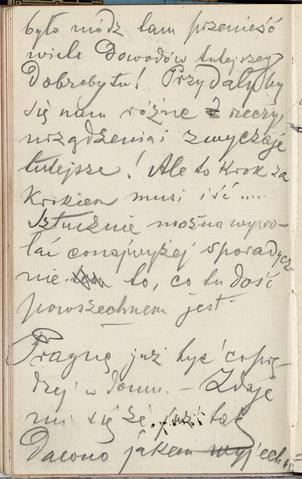 było módz tam przenieść
wiele Dowodów tutejszej
Dobrobytu! Przydałyby
się nam różne rzeczy,
urządzenia i zwyczaje
tutejsze! Ale to Krok za
Krokiem musi iść .....
Sztucznie można wywo-
łać conajwyżej sporadycz-
nie to, co tu dość
powszechnem jest -
Pragnę już być coprę-
dzej w domu. - Zdaje
mi się że już tak
Dawno jakem wyjechał